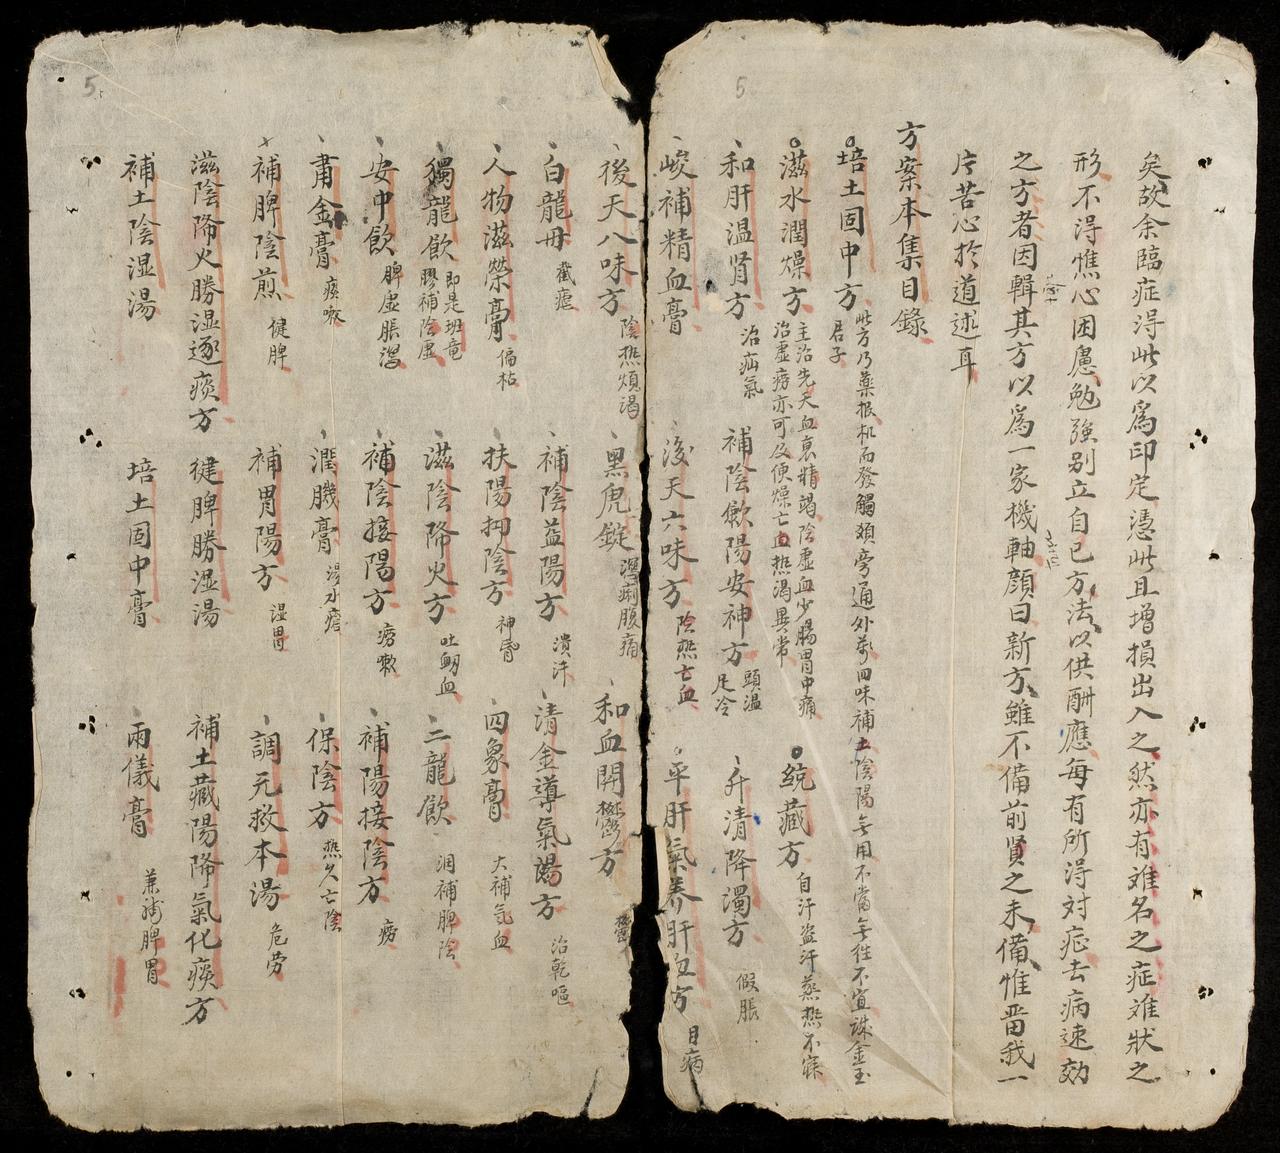 矣故余臨症得此以爲印定憑此且增損出入之然亦有难名之症难狀之
形不得憔心困慮勉強别立自已方法以供酬應每有所得对症去病速効
之方者因輯其方以爲一家機軸顔曰新方雖不備前賢之未備惟畱我一
片苦心於道述耳
方案本集目錄
培土固中方 此方乃藥根机而發觸類旁通外萬四味補土陰陽無用不當無往不宜誠金玉
君子
滋水潤燥方 主治先天血衰精竭陰虛血少腸胃中痛
治虛癆亦可及便燥亡血热渴異常
統藏方 自汗盜汗蒸热不寐
和肝温肾方 治疝氣
補陰歛陽安神方 頭温
足冷
升清降濁方 假脹
峻補精血膏
後天六味方 陰热亡血
平肝氣养肝血方 目病
後天八味方 陰热煩渴
黑虎錠 瀉痢腹痛
和血開鬱方 鬱
白龍丹 截瘧
補陰益陽方 潰汗
清金導氣湯方 治乾嘔
人物滋榮膏 偏枯
扶陽抑陰方 神昏
四象膏 大補氣血
獨龍飲 即是班竜
膠補陰虛
滋陰降火方 吐衂血
二龍飲 調補脾陰
安中飲 脾虛脹瀉
補陰接陽方 癆嗽
補陽接陰方 癆
肅金膏 痰嗽
潤機膏 湯水瘡
保陰方 热久亡陰
補脾陰煎 健脾
補胃陽方 湿胃
調元救本湯 危劳
滋陰降火勝湿逐痰方
健脾勝湿湯
補土藏陽降氣化痰方
補土陰湿湯
培土固中膏
兩儀膏 兼補脾胃
5
5